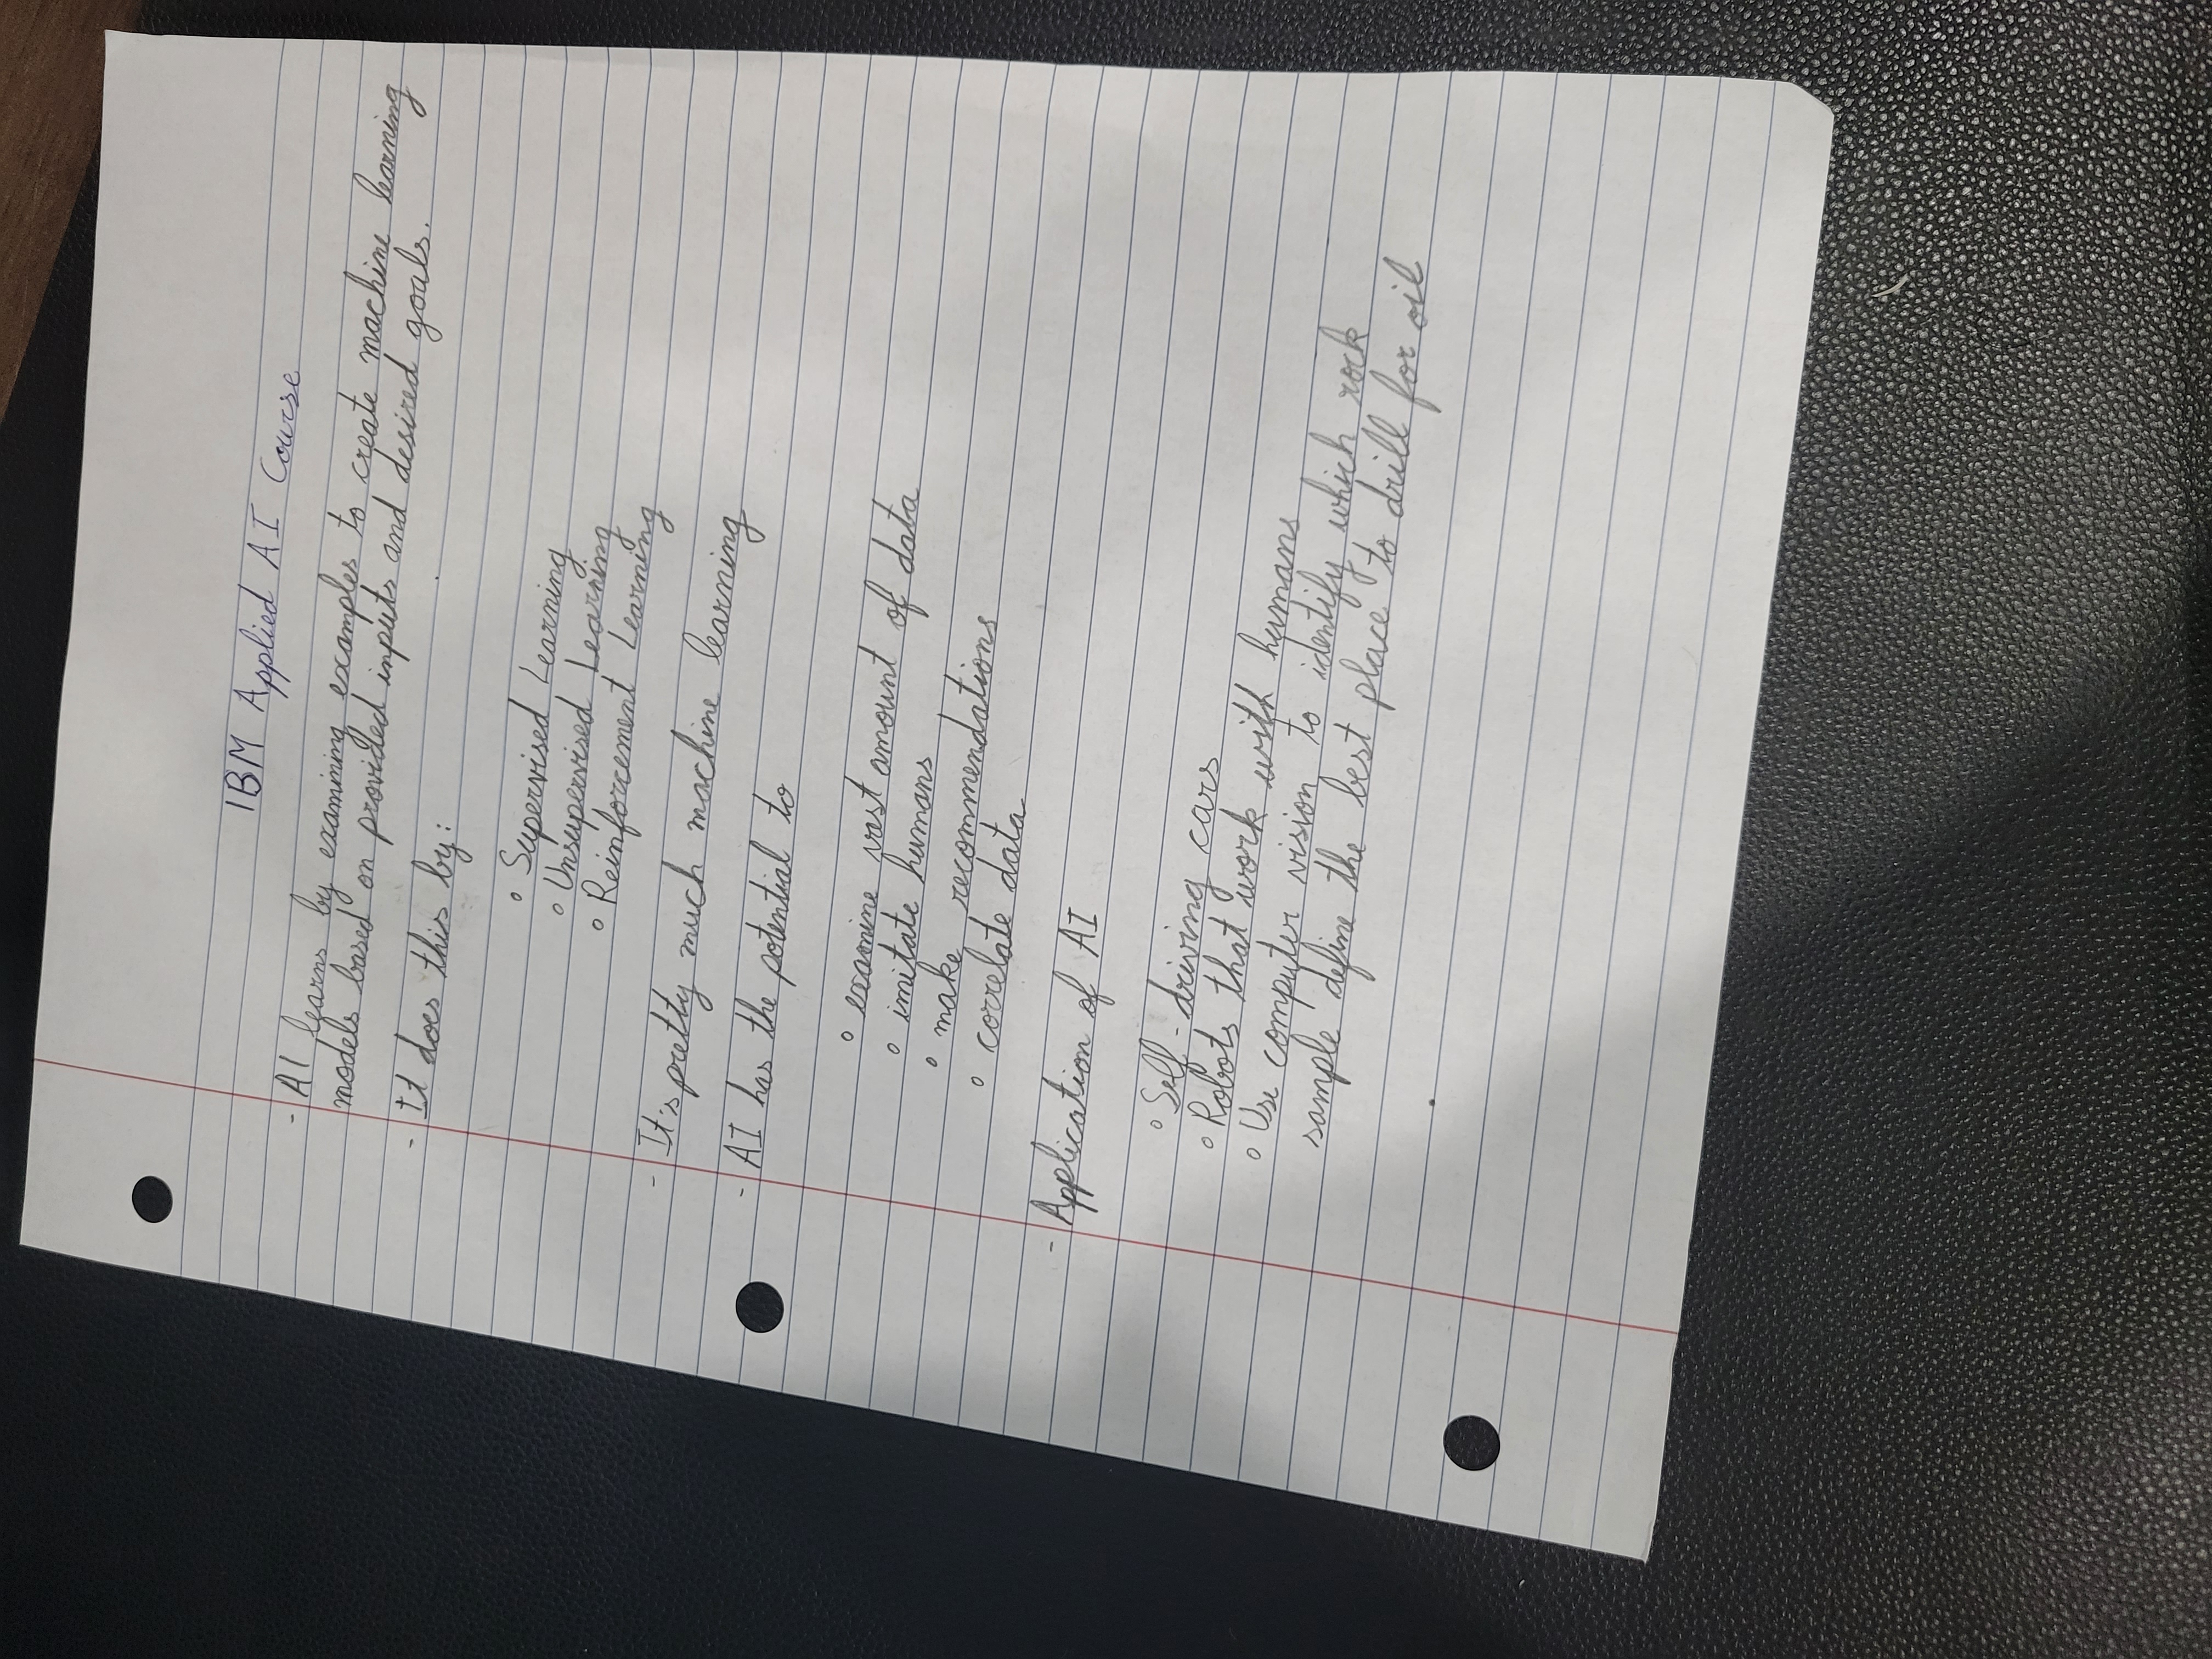 IBM Applied AI Course
- AI learns by examining examples to create machine learning
models based on provided inputs and desired goals.
- It does this by:
◦ Supervised Learning
◦ Unsupervised Learning
◦ Reinforcement Learning
- It's pretty much machine learning
- AI has the potential to
◦ examine vast amount of data
◦ imitate humans
◦ make recommendations
◦ correlate data
- Application of AI
◦ Self-driving cars
◦ Robots that work with humans
◦ Use computer vision to identify which rock
sample define the best place to drill for oil